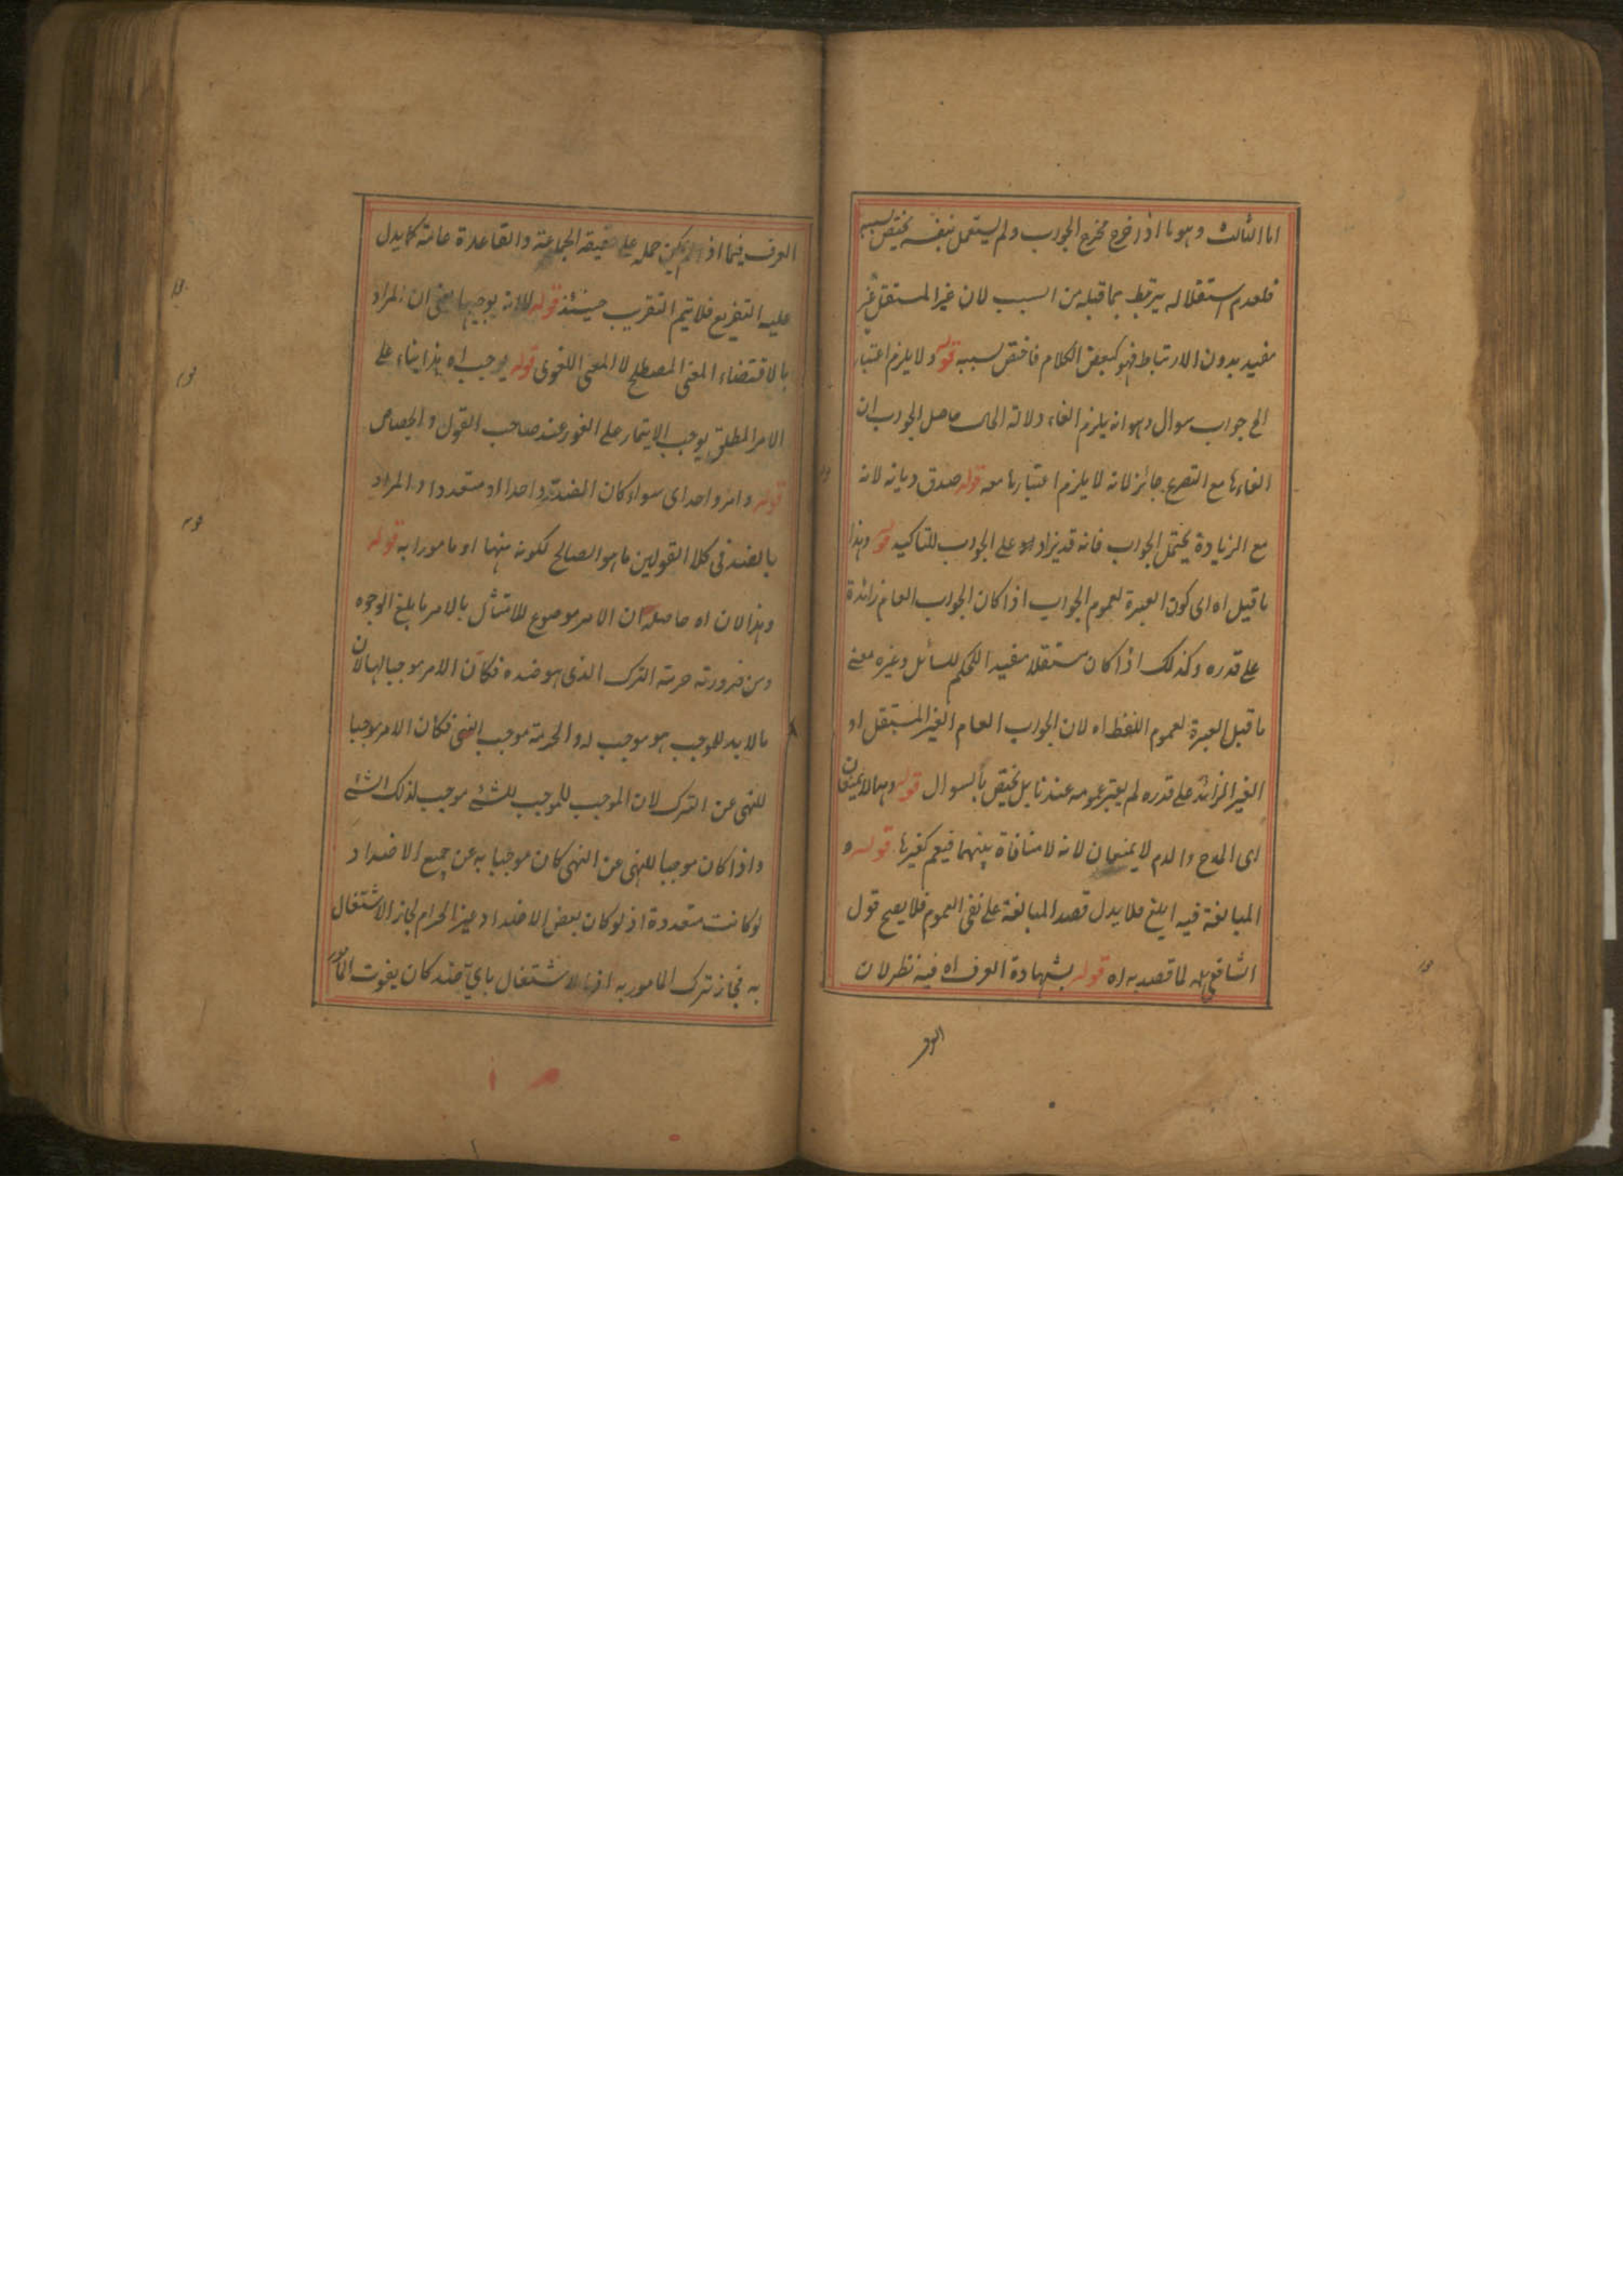 اما الثالث وهو ما اذا خرج مخرج الجواب ولم يستقل بنفسه يختص بسببه
فلعدم استقلاله يرتبط بما قبله من السبب لان غير المستقل غير
مفيد بدون الارتباط فهو كبعض الكلام فاختص بسببه قوله ولا يلزم اعتبار
الخ جواب سوال وهو انه يلزم الغاء دلالة الحال حاصل الجواب ان
الغاءها مع التصريح جائز لانه لا يلزم اعتبارها معه قوله صدق ديانة لانه
مع الزيادة يحتمل الجواب فانه قد يزاد على الجواب للتاكيد قوله وهذا
ما قيل اه اى كون العبرة لعموم الجواب اذا كان الجواب العام زائدة
على قدره وكذلك اذا كان مستقلا مفيد الحكم للسائل وغيره معنى
ما قيل العبرة لعموم اللفظ اه لان الجواب العام الغير المستقل او
الغير الزائد على قدره لم يعتبر عمومه عندنا بل يختص بالسوال قوله وهما لا يمنعان
اى المدح والذم لا يمنعان لانه لا منافاة بينهما فيعم كغيرها قوله و
المبالغة فيه ابلغ فلا يدل قصد المبالغة على نفى العموم فلا يصح قول
الشافعى لما قصد به اه قوله بشهادة العرف اه فيه نظر لان
العرف
العرف فيما اذا لم يمكن حمله على حقيقة الجماعة والقاعدة عامة كما يدل
عليه التفريع فلا يتم التقريب حينئذ قوله لا انه يوجبها يعنى ان المراد
بالاقتضاء المعنى المصطلح لا المعنى اللغوى قوله يوجب اه هذا بناء على
الامر المطلق يوجب الايتمار على الفور عند صاحب القول والجصاص
قوله وامر واحد اى سواء كان الضد واحدا او متعددا والمراد
بالضد فى كلا القولين ما هو الصالح لكونه منهيا او مامورا به قوله
وهذا لان اه حاصله ان الامر موضوع للامتثال بالامر بابلغ الوجوه
ومن ضرورته حرمة الترك الذى هو ضده فكان الامر موجبا لها لان
ما لا بد للموجب هو موجب له والحرمة موجب النهى فكان الامر موجبا
للنهى عن الترك لان الموجب للموجب للشئ موجب لذلك الشئ
واذا كان موجبا للنهى عن النهى كان موجبا به عن جميع الاضداد
لو كانت متعددة اذ لو كان بعض الاضداد غير الحرام لجاز الاشتغال
به فجاز ترك المامور به اذ بالاشتغال باى ضد كان يفوت المامور